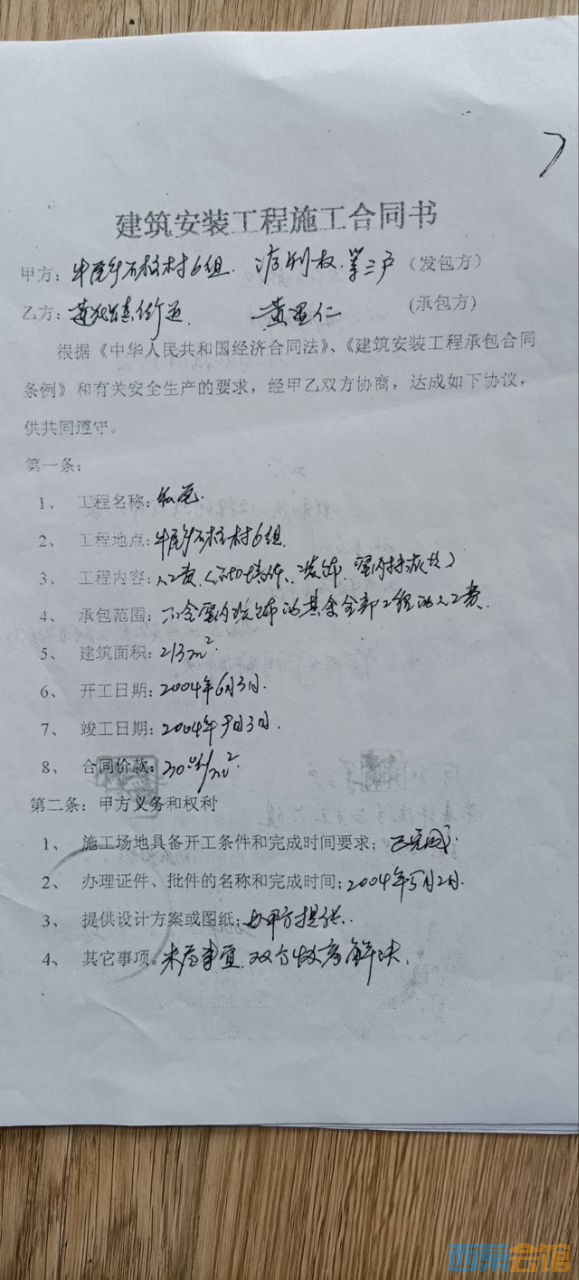 建筑安装工程施工合同书
甲方：牛尾乡石柱村6组. 权.等三户（发包方）
乙方： 黄 仁 （承包方）
根据《中华人民共和国经济合同法》、《建筑安装工程承包合同
条例》和有关安全生产的要求，经甲乙双方协商，达成如下协议，
供共同遵守。
第一条：
1、 工程名称：私宅.
2、 工程地点：牛尾乡石柱村6组.
3、 工程内容：人工费（ 装饰. 室内 ）
4、 承包范围：不含室内装饰的其余全部工程的人工费.
5、 建筑面积：213m²
6、 开工日期：2004年6月3日.
7、 竣工日期：2004年9月3日.
8、 合同价款： /m²
第二条：甲方义务和权利
1、 施工场地具备开工条件和完成时间要求：已完成.
2、 办理证件、批件的名称和完成时间：2004年5月2日.
3、 提供设计方案或图纸：由甲方提供.
4、 其它事项。未尽事宜.双方协商解决.
西果会馆